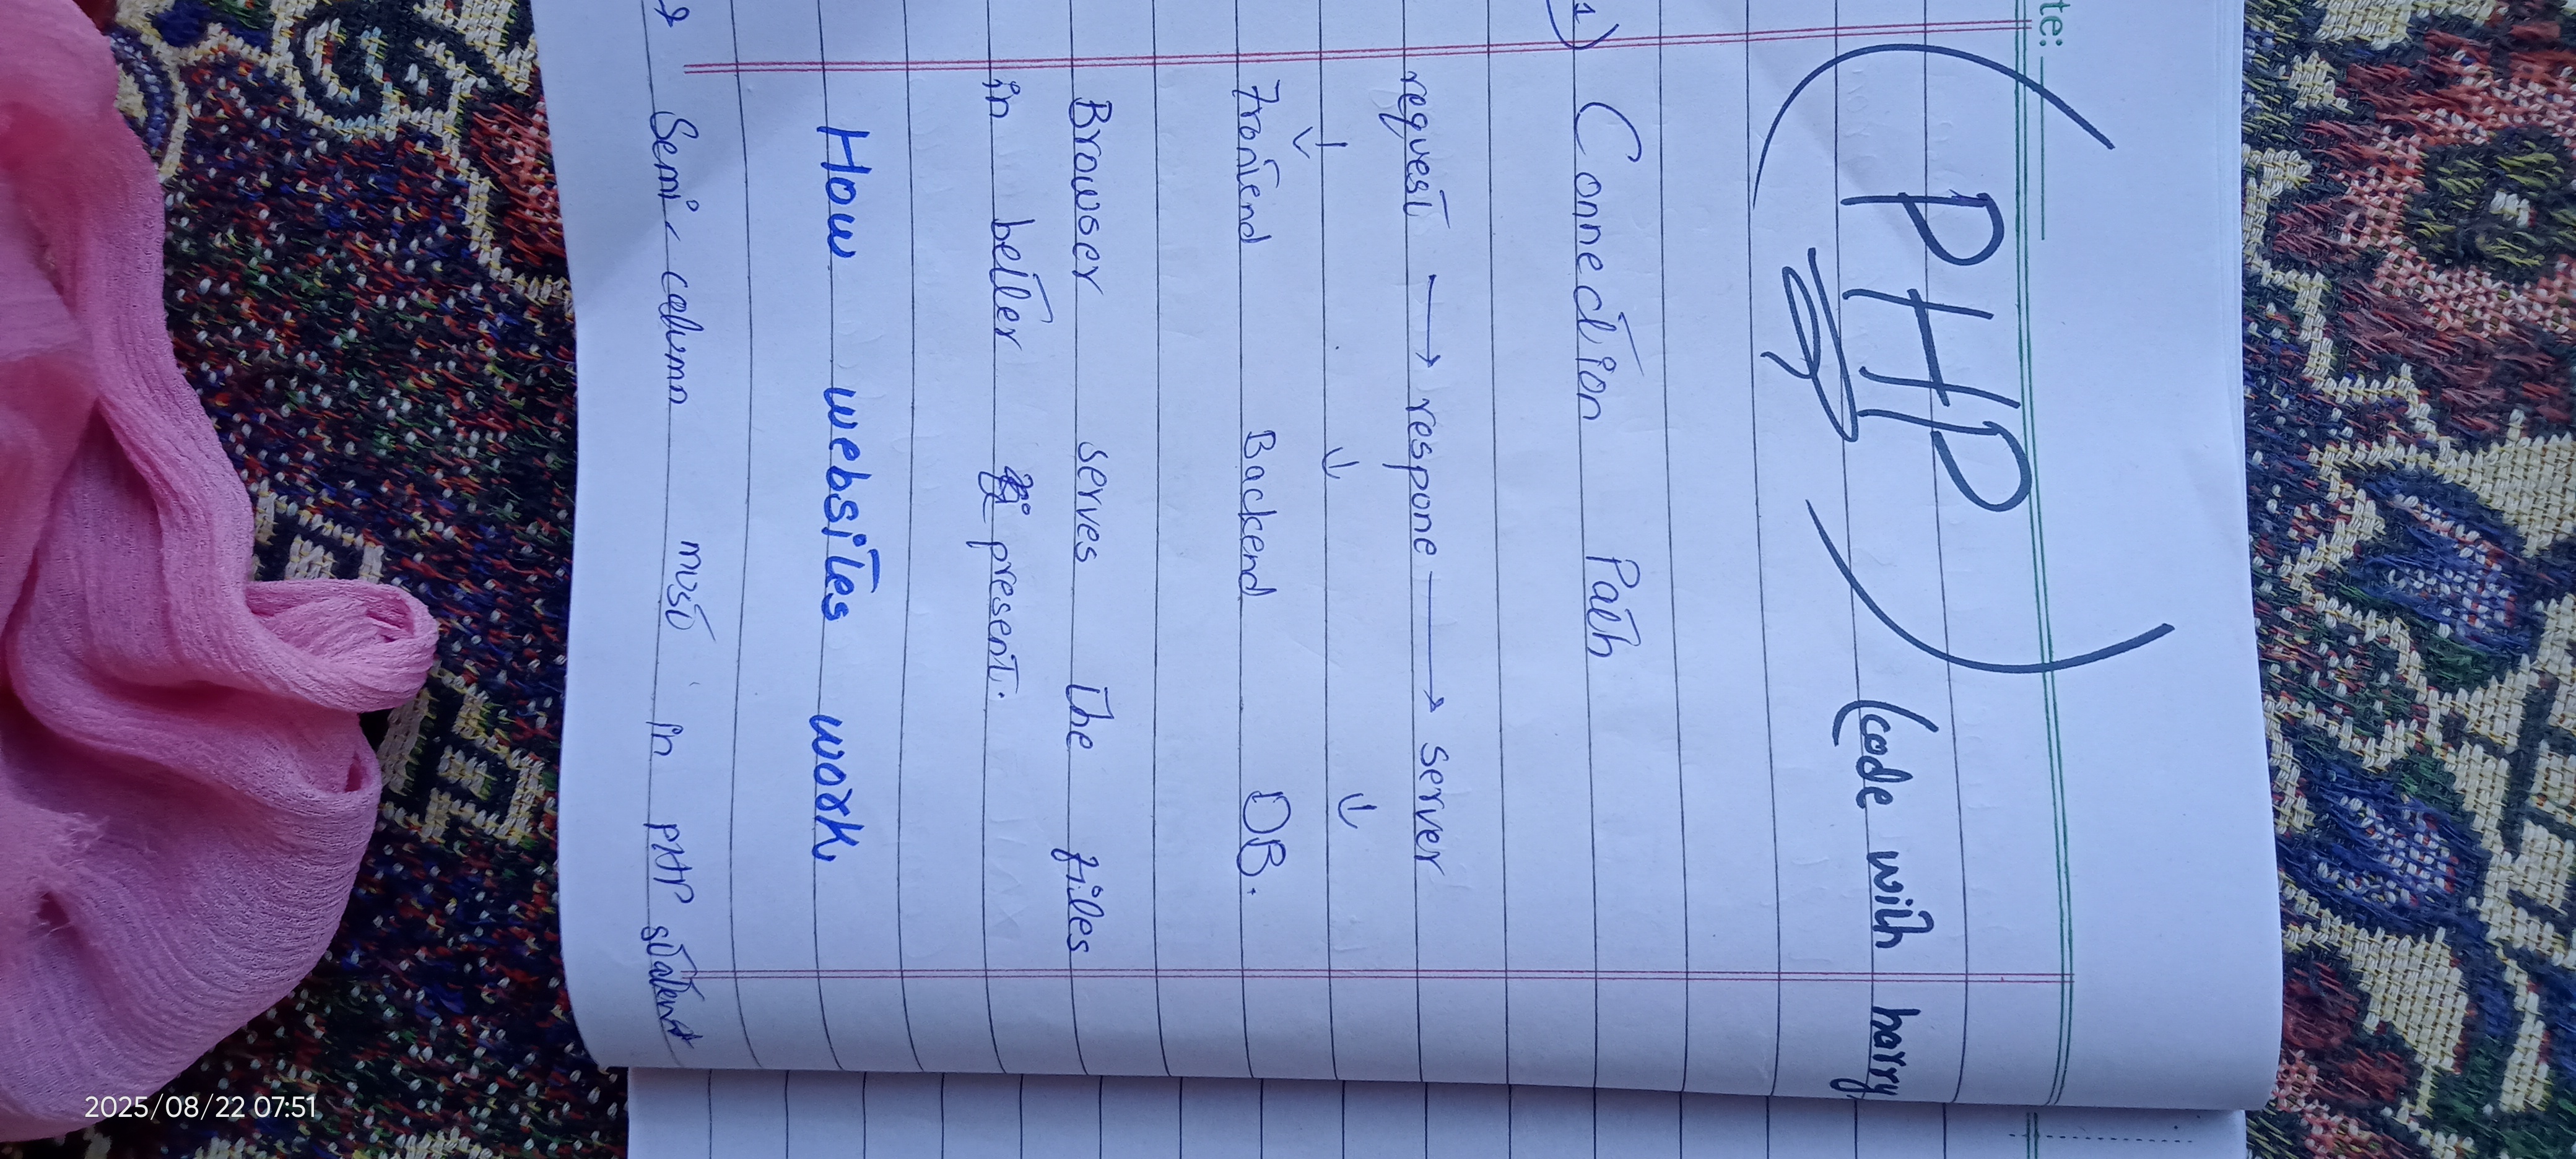 te:
(PHP) code with harry
1) Connection Path
request → respone → server
↓ ↓ ↓
Frontend Backend DB.
Browser serves the files
in better present.
How websites work
Semi-column must in PHP statemt
2025/08/22 07:51